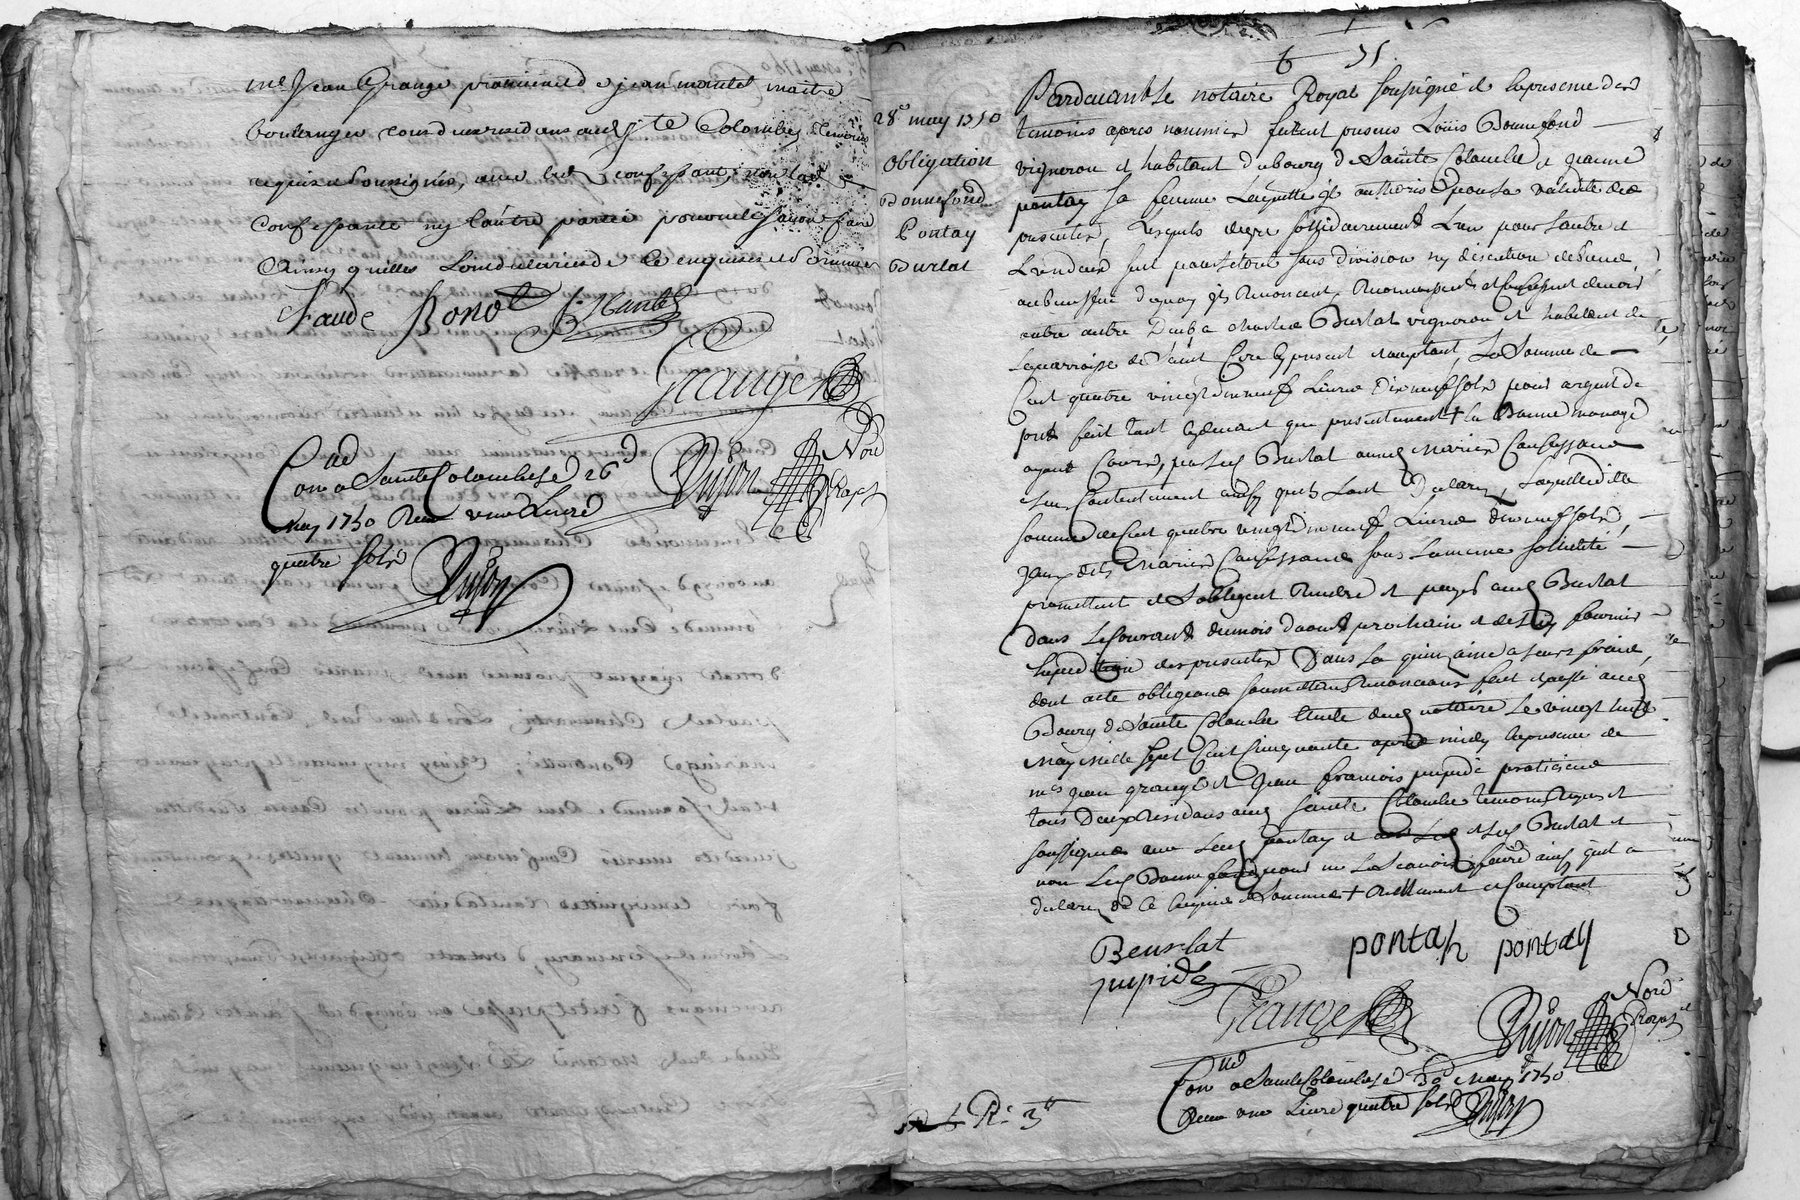 me Jean Grange praticien et jean mantel maitre
boulanger tous deux residans aud ste Colombe, temoins
requis et soussignés, avec led confessant, non lad
confessante ny l'autre partie pour ne le sçavoir faire
Ainsy qu'elles l'ont declarées de ce enquises et sommées
faude Bonot J. Mantel
Grange
Con a Sainte Colombe le 26
Dujon Nore Royal
may 1750 Reçu une Livre
quatre sols
Dujon
6 71
28e may 1750
obligation
Bonnefond
Pontay
Burlat
Pardevant le notaire Royal soussigné et en presence des
temoins apres nommés furent presens Loüis Bonnefond
vigneron et habitant du bourg de Sainte Colombe et Jeanne
pontay sa femme Laquelle il authorise pour la validité des
presentes, Lesquels de gré solidairement L'un pour l'autre et
L'un d'eux seul pour le tout sans division ny discution
au benefice de quoy ils Renoncent, Reconnoissent et Confessent devoir
a Charles Burlat vigneron et habitant de
La parroisse de Saint Cire present et acceptant, La Somme de
Cent quatre vingt dix neuf Livres dix neuf sols pour argent de
pret fait tant cydevant que presentement + en Bonne monoye
ayant Cours, par led Burlat auxd mariés Confessans
a leur Contentement ainsy qu'ils l'ont declaré, Laquelle ditte
somme de Cent quatre vingt dix neuf Livres dix neuf sols,
Lesdits mariés Confessans sous La meme solidité
promettent et s'obligent Rendre et payer aud Burlat
dans Le Courant du mois d'aoust prochain et de luy fournir
Expedition des presentes Dans La quinzaine a leurs fraix,
dont acte obligeans soumettans Renonceans fait et passé aud
Bourg de Sainte Colombe Etude dud notaire Le vingt huit
may mil sept Cent Cinquante apres midy en presence de
me jean grange et Jean francois pupide praticiens
tous deux residans aud Sainte Colombe temoins Requis et
soussignés avec Lad pontay et led Burlat et
non Led Bonnefond pour ne Le Scavoir faire ainsy qu'il a
declaré de ce enquis et Sommé + Reellement et Comptant
Beurlat pontay pontay
pupide
Grange
Dujon Nore Royal
Con a Sainte Colombe le 30 May 1750
Reçu une Livre quatre sols Dujon
R. 3